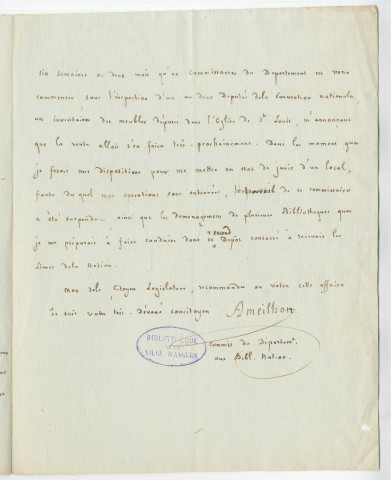 six semaines ou deux mois qu'un commissaire du Département est venu
commencer sous l'inspection d'un ou deux Députés de la Convention nationale
un inventaire des meubles déposés dans l'Eglise de St Louis, m'annonçant
que la vente alloit s'en faire très-prochainement. Dans le moment que
je faisois mes dispositions pour me mettre en état de jouir d'un local,
faute duquel mes opérations sont entravées, de ce commissaire
a été suspendu ainsi que le déménagement de plusieurs Bibliothèques que
je me préparois à faire conduire dans ce second Dépôt consacré à recevoir les
livres de la Nation.
Mon zélé Citoyen Législateur, recommande en votre cette affaire
Je suis votre très-Dévoué concitoyen Ameilhon
commiss. du Départem.t
aux Bibl. Nation.
BIBLIOTHEQUE
DE LA
VILLE D'ANGERS